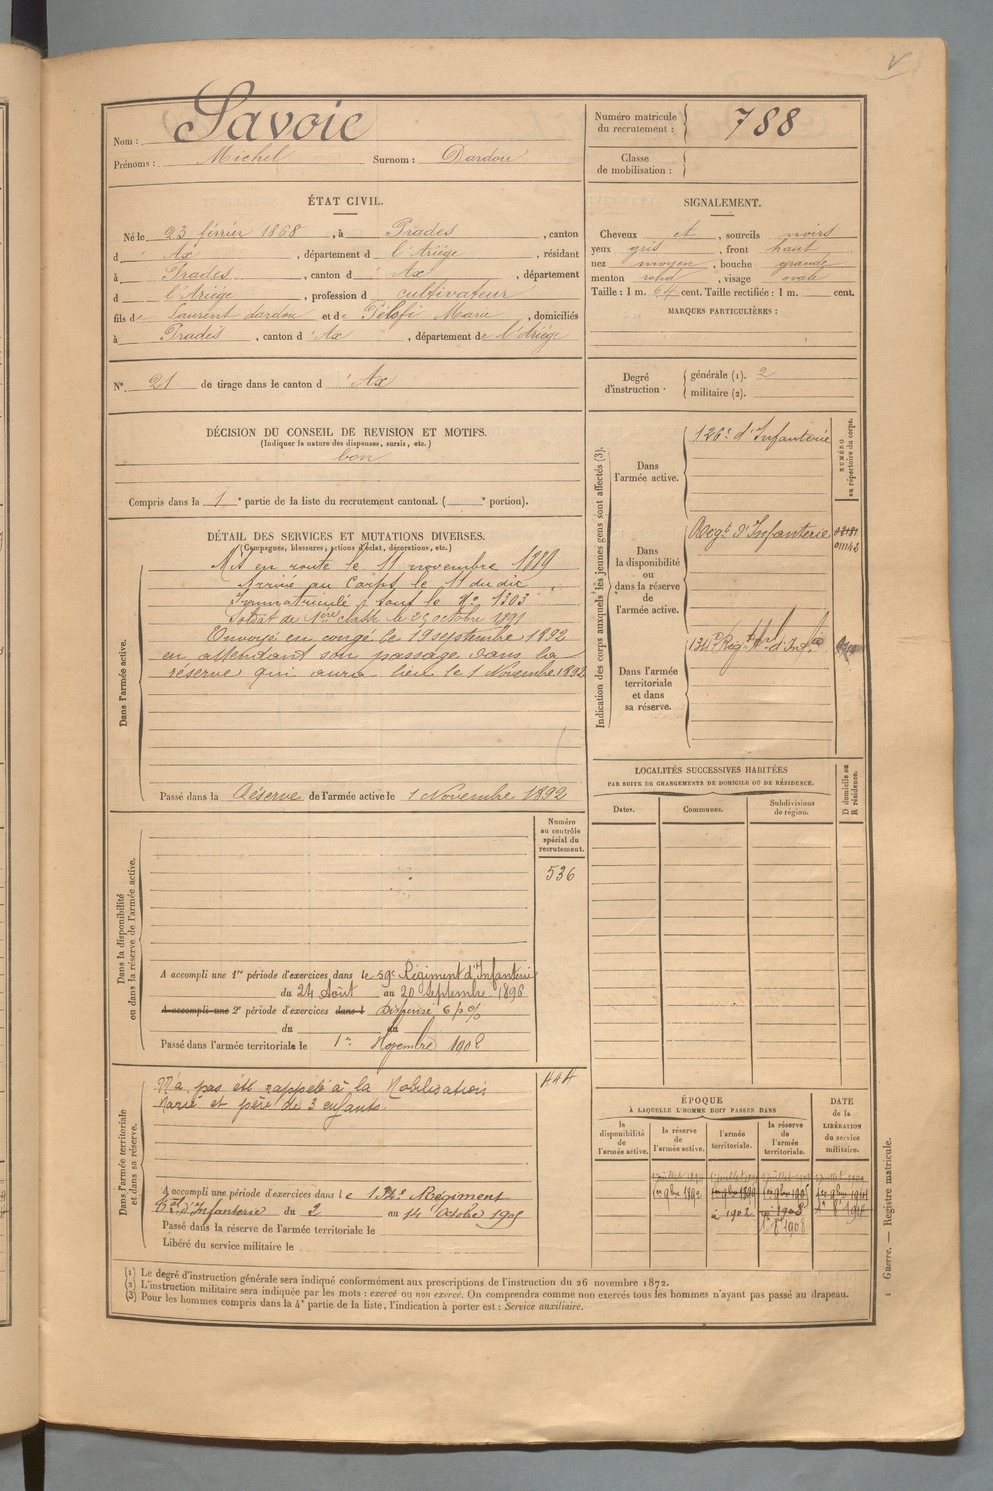 Nom : Savoie
Prénoms : Michel Surnom : Dardou
Numéro matricule du recrutement : 788
Classe de mobilisation :
ÉTAT CIVIL.
Né le 23 février 1868, à Prades, canton
d'Ax, département de l'Ariège, résidant
à Prades, canton d'Ax, département
d l'Ariège, profession d cultivateur
fils de Laurent dardou et de Marie, domiciliés
à Prades, canton d'Ax, département de l'Ariège
N° 21 de tirage dans le canton d'Ax
SIGNALEMENT.
Cheveux et, sourcils noirs
yeux gris, front haut
nez moyen, bouche grande
menton rond, visage ovale
Taille : 1 m. 64 cent. Taille rectifiée : 1 m. cent.
MARQUES PARTICULIÈRES :
Degré d'instruction. générale (1). 2
militaire (2).
DÉCISION DU CONSEIL DE REVISION ET MOTIFS.
(Indiquer la nature des dispenses, sursis, etc.)
bon
Compris dans la 1e partie de la liste du recrutement cantonal. ( e portion).
DÉTAIL DES SERVICES ET MUTATIONS DIVERSES.
(Campagnes, blessures, actions d'éclat, décorations, etc.)
Dans l'armée active.
Mis en route le 11 novembre 1889
Arrivé au Corps le 11 du dit
Immatriculé sous le N° 1303
Soldat de 1ère classe le 25 octobre 1891
Envoyé en congé le 19 septembre 1892
en attendant son passage dans la
réserve qui aura lieu le 1 Novembre 1892
Passé dans la Réserve de l'armée active le 1 Novembre 1892
Indication des corps auxquels les jeunes gens sont affectés (3).
NUMÉRO au répertoire du corps.
Dans l'armée active.
126e d'Infanterie
Dans la disponibilité ou dans la réserve de l'armée active.
Regt d'Infanterie
011142
Dans l'armée territoriale et dans sa réserve.
134e Régt Tal d'Infie
LOCALITÉS SUCCESSIVES HABITÉES
PAR SUITE DE CHANGEMENTS DE DOMICILE OU DE RÉSIDENCE.
Dates.
Communes.
Subdivisions de région.
D domicile ou R résidence.
Dans la disponibilité ou dans la réserve de l'armée active.
Numéro au contrôle spécial du recrutement.
536
A accompli une 1re période d'exercices dans le 59e Régiment d'Infanterie
du 24 Août au 20 septembre 1896
A accompli une 2e période d'exercices dans l Dispensé 6 p %
du au
Passé dans l'armée territoriale le 1er Novembre 1902
Dans l'armée territoriale et dans sa réserve.
444
N'a pas été rappelé à la Mobilisation
Marié et père de 3 enfants
A accompli une période d'exercices dans l e 134e Régiment
Tal d'Infanterie du 2 au 14 Octobre 1905
Passé dans la réserve de l'armée territoriale le
Libéré du service militaire le
ÉPOQUE
À LAQUELLE L'HOMME DOIT PASSER DANS
la disponibilité de l'armée active.
la réserve de l'armée active.
l'armée territoriale.
la réserve de l'armée territoriale.
DATE de la LIBÉRATION du service militaire.
1er 9bre 1892
à 1902
1908
(1) Le degré d'instruction générale sera indiqué conformément aux prescriptions de l'instruction du 26 novembre 1872.
(2) L'instruction militaire sera indiquée par les mots : exercé ou non exercé. On comprendra comme non exercés tous les hommes n'ayant pas passé au drapeau.
(3) Pour les hommes compris dans la 4e partie de la liste, l'indication à porter est : Service auxiliaire.
1 Guerre. — Registre matricule.